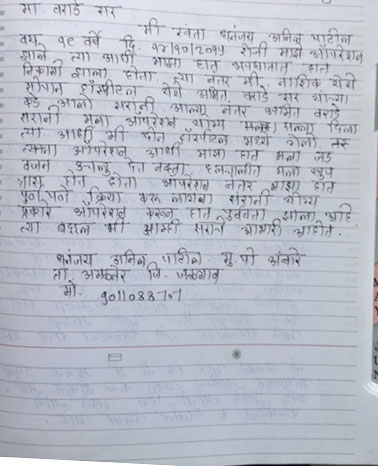 मा. वराडे सर
मी स्वतः धनंजय अनिल पाटील
वय १९ वर्षे दि. रोजी माझे ऑपरेशन
झाले त्या आधी माझा हात अपघातात हात
निकामी झाला होता. त्या नंतर मी नाशिक येथे
सोपान हॉस्पीटल येथे अमित वराडे सर यांच्या
कडे आलो सरांनी आल्या नंतर अमित वराडे
सरांनी मला ऑपरेशन योग्य सल्ला दिला
त्या आधी मी दोन हॉस्पीटल मध्ये गेलो तर
ऑपरेशन आधी माझा हात मला जड
वजन उचलू देत नव्हता. हालचालीत मला खूप
त्रास होत होता ऑपरेशन नंतर माझा हात
क्रिया करू लागला सरांनी योग्य
प्रकारे ऑपरेशन करून हात झाला आहे
त्या बद्दल मी आम्ही सरांचे आभारी आहोत.
धनंजय अनिल पाटील मु. पो
ता. अमळनेर जि. जळगाव
मो.